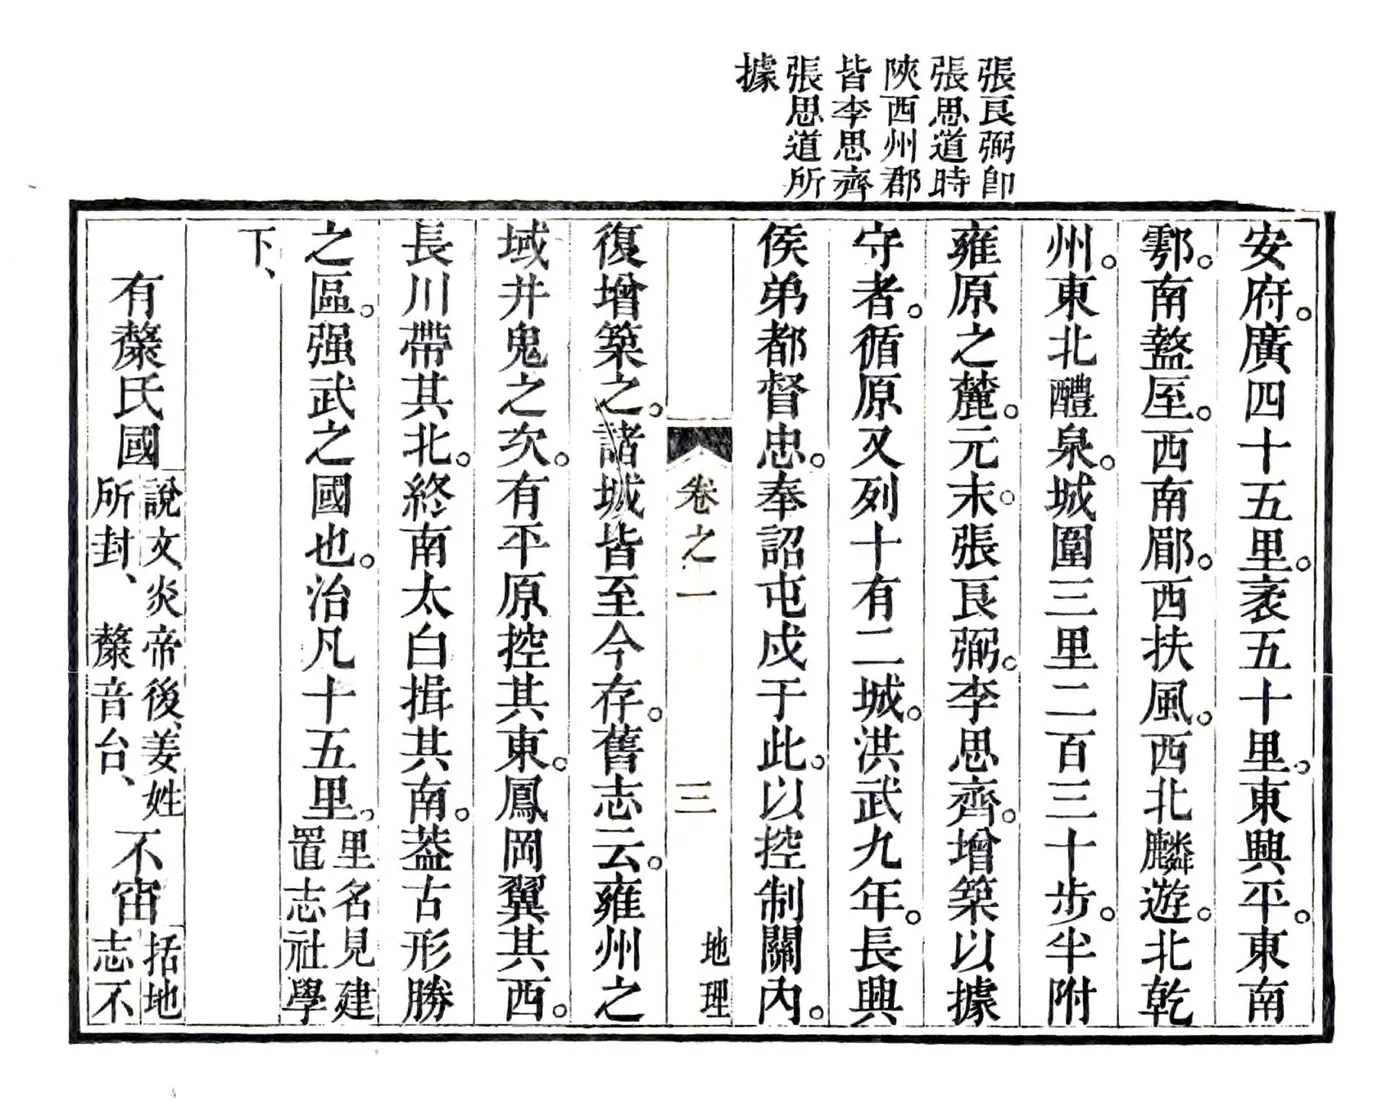 張良弼即
張思道時
陝西州郡
皆李思齊
張思道所
據
安府。廣四十五里。袤五十里。東興平。東南
鄠。南盩厔。西南郿。西扶風。西北麟遊。北乾
州。東北醴泉。城圍三里二百三十步。半附
雍原之麓。元末。張良弼。李思齊。增築以據
守者。循原又列十有二城。洪武九年。長興
侯弟都督忠。奉詔屯戍于此。以控制關內。
卷之一 三 地理
復增築之。諸城皆至今存。舊志云。雍州之
域井鬼之次。有平原控其東。鳳岡翼其西。
長川帶其北。終南太白揖其南。蓋古形勝
之區。强武之國也。治凡十五里。里名見建
置志社學
下、
有斄氏國說文炎帝後、姜姓
所封、斄音台、不窋括地
志不